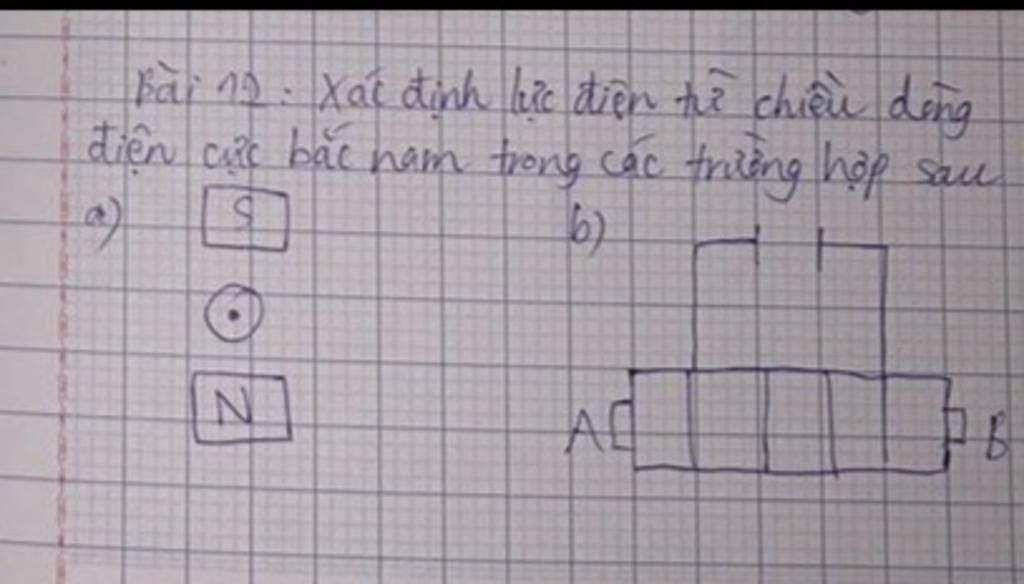 Bài 12: Xác định lực điện từ chiều dòng
điện cực bắc nam trong các trường hợp sau
a)
S
N
b)
A
B